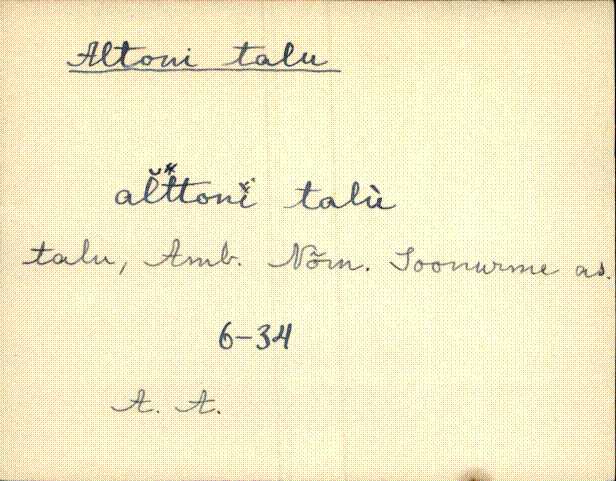 Altoni talu
al̆ttoni talù
talu, Amb. Nõm. Soonurme as.
6-34
A. A.